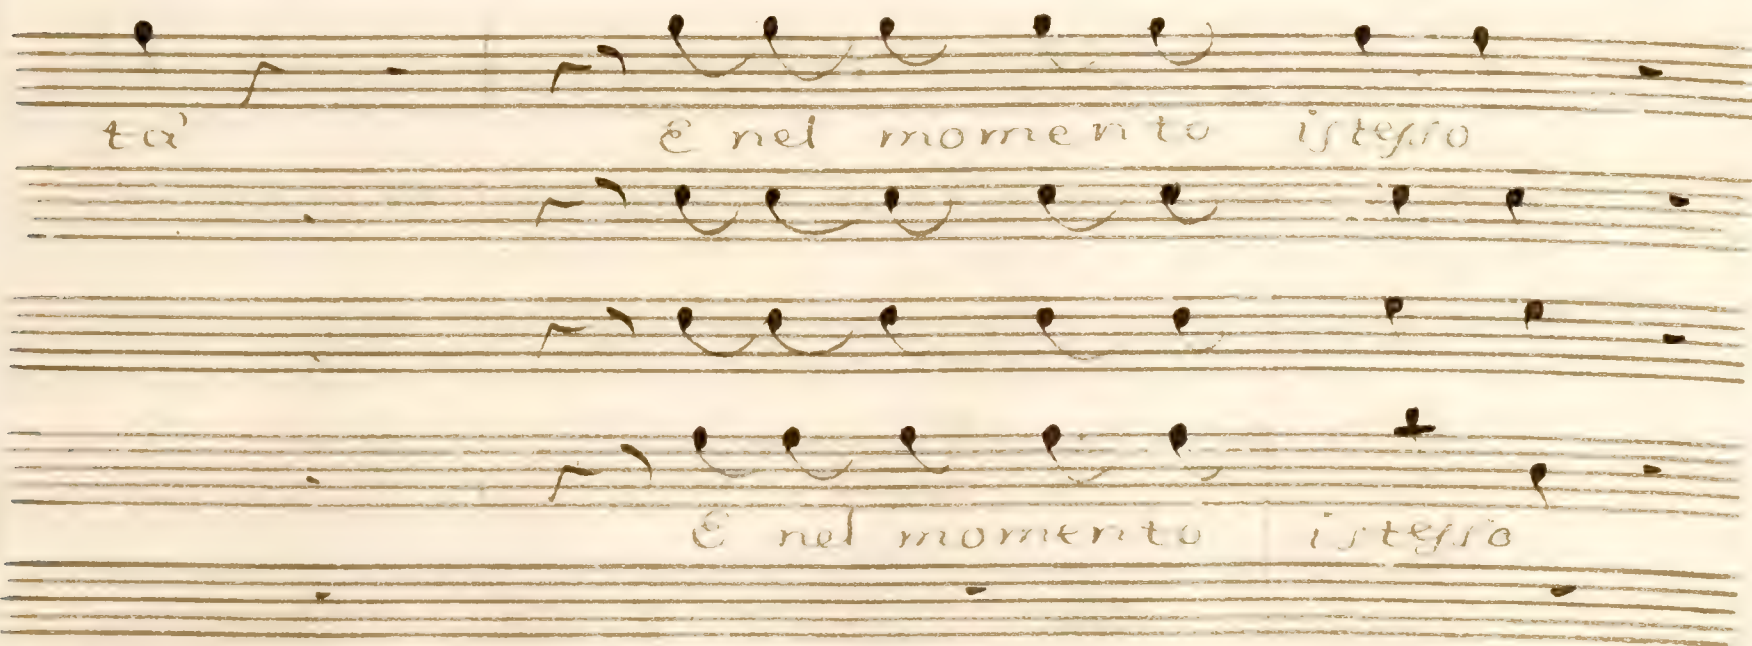 tà E nel momento istesso
E nel momento istesso